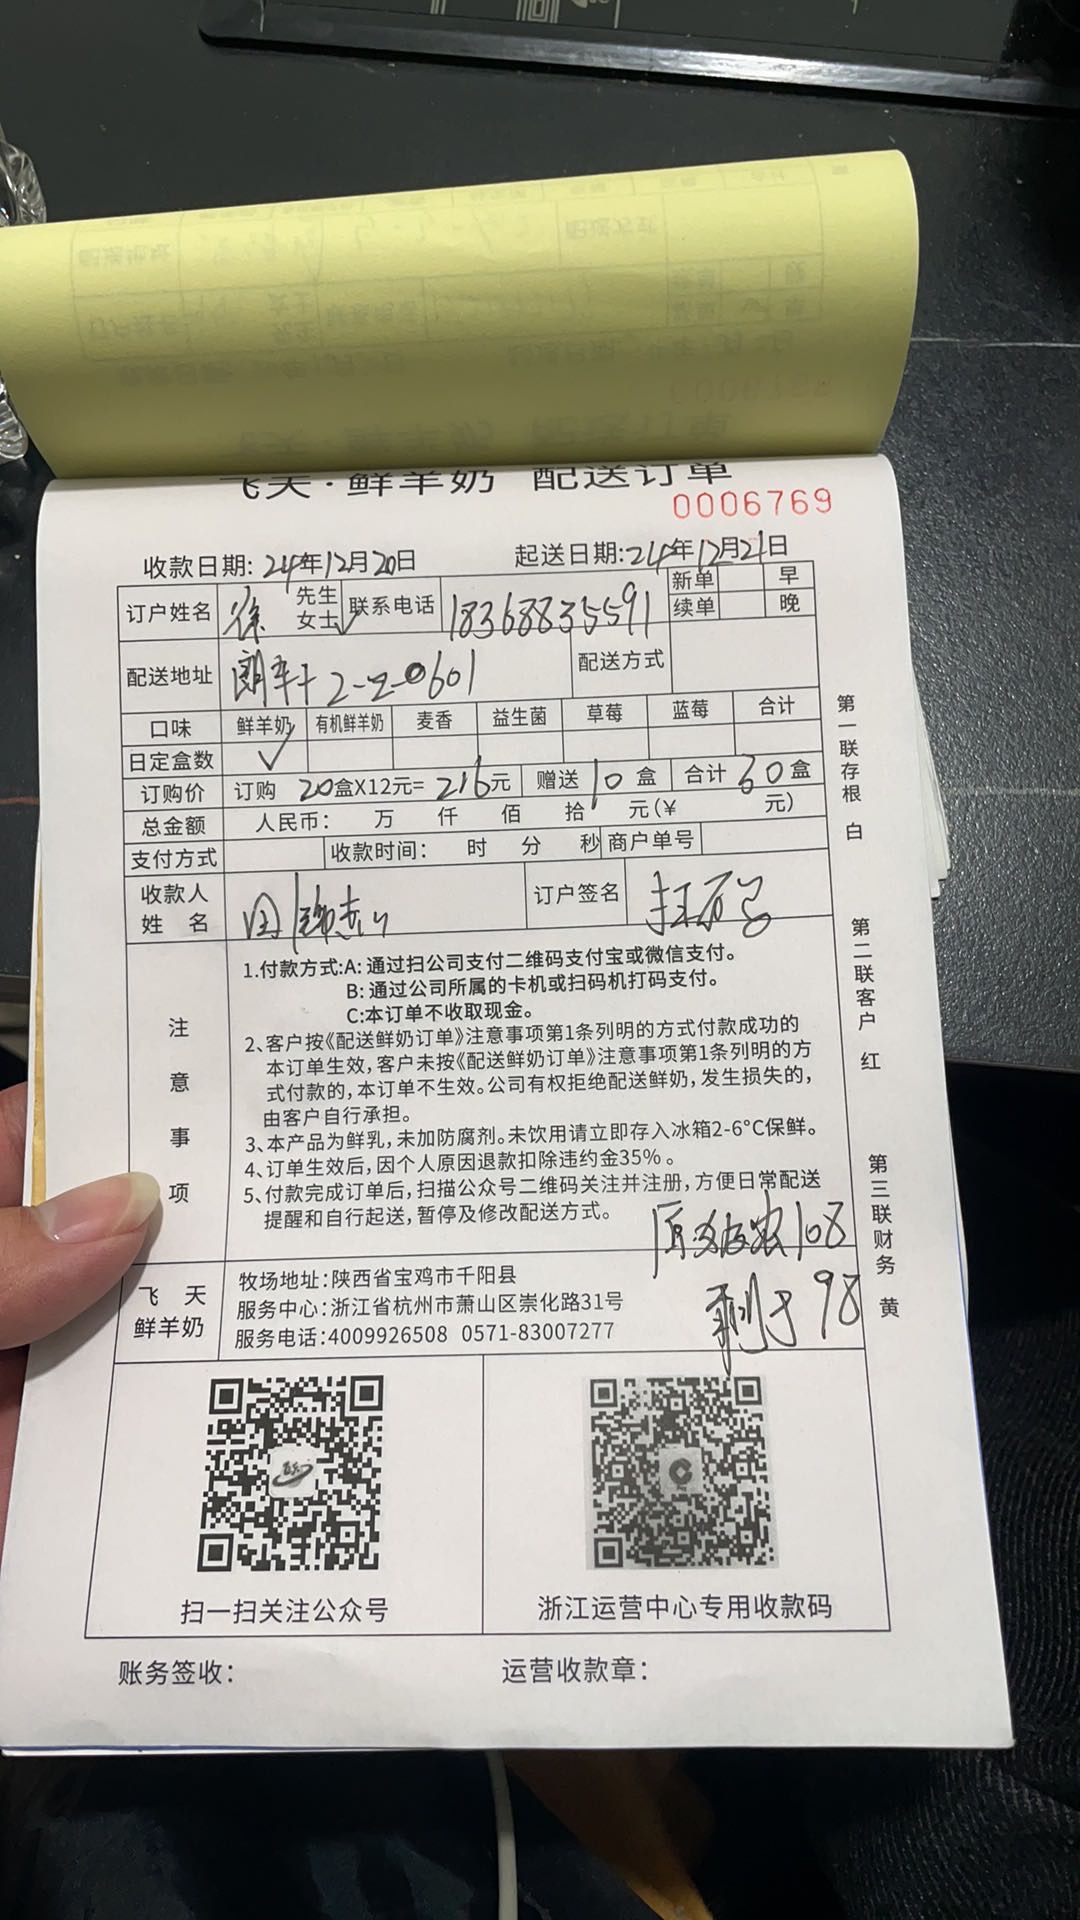 飞天·鲜羊奶 配送订单
0006769
收款日期: 24年12月20日 起送日期: 24年12月21日
订户姓名 徐 先生 女士 ✓ 联系电话 18368835591 新单 早
续单 晚
配送地址 2-2-0601 配送方式
口味 鲜羊奶 有机鲜羊奶 麦香 益生菌 草莓 蓝莓 合计
日定盒数 ✓
订购价 订购 20盒X12元= 216元 赠送 10 盒 合计 30 盒
总金额 人民币: 万 仟 佰 拾 元(¥ 元)
支付方式 收款时间: 时 分 秒 商户单号
收款人 姓名 订户签名
注意事项
1.付款方式:A: 通过扫公司支付二维码支付宝或微信支付。
B: 通过公司所属的卡机或扫码机打码支付。
C:本订单不收取现金。
2、客户按《配送鲜奶订单》注意事项第1条列明的方式付款成功的
本订单生效, 客户未按《配送鲜奶订单》注意事项第1条列明的方
式付款的, 本订单不生效。公司有权拒绝配送鲜奶, 发生损失的,
由客户自行承担。
3、本产品为鲜乳, 未加防腐剂。未饮用请立即存入冰箱2-6°C保鲜。
4、订单生效后, 因个人原因退款扣除违约金35%。
5、付款完成订单后, 扫描公众号二维码关注并注册, 方便日常配送
提醒和自行起送, 暂停及修改配送方式。
108
剩于98
飞天
鲜羊奶
牧场地址: 陕西省宝鸡市千阳县
服务中心: 浙江省杭州市萧山区崇化路31号
服务电话: 4009926508 0571-83007277
扫一扫关注公众号
浙江运营中心专用收款码
账务签收: 运营收款章:
第一联存根 白
第二联客户 红
第三联财务 黄